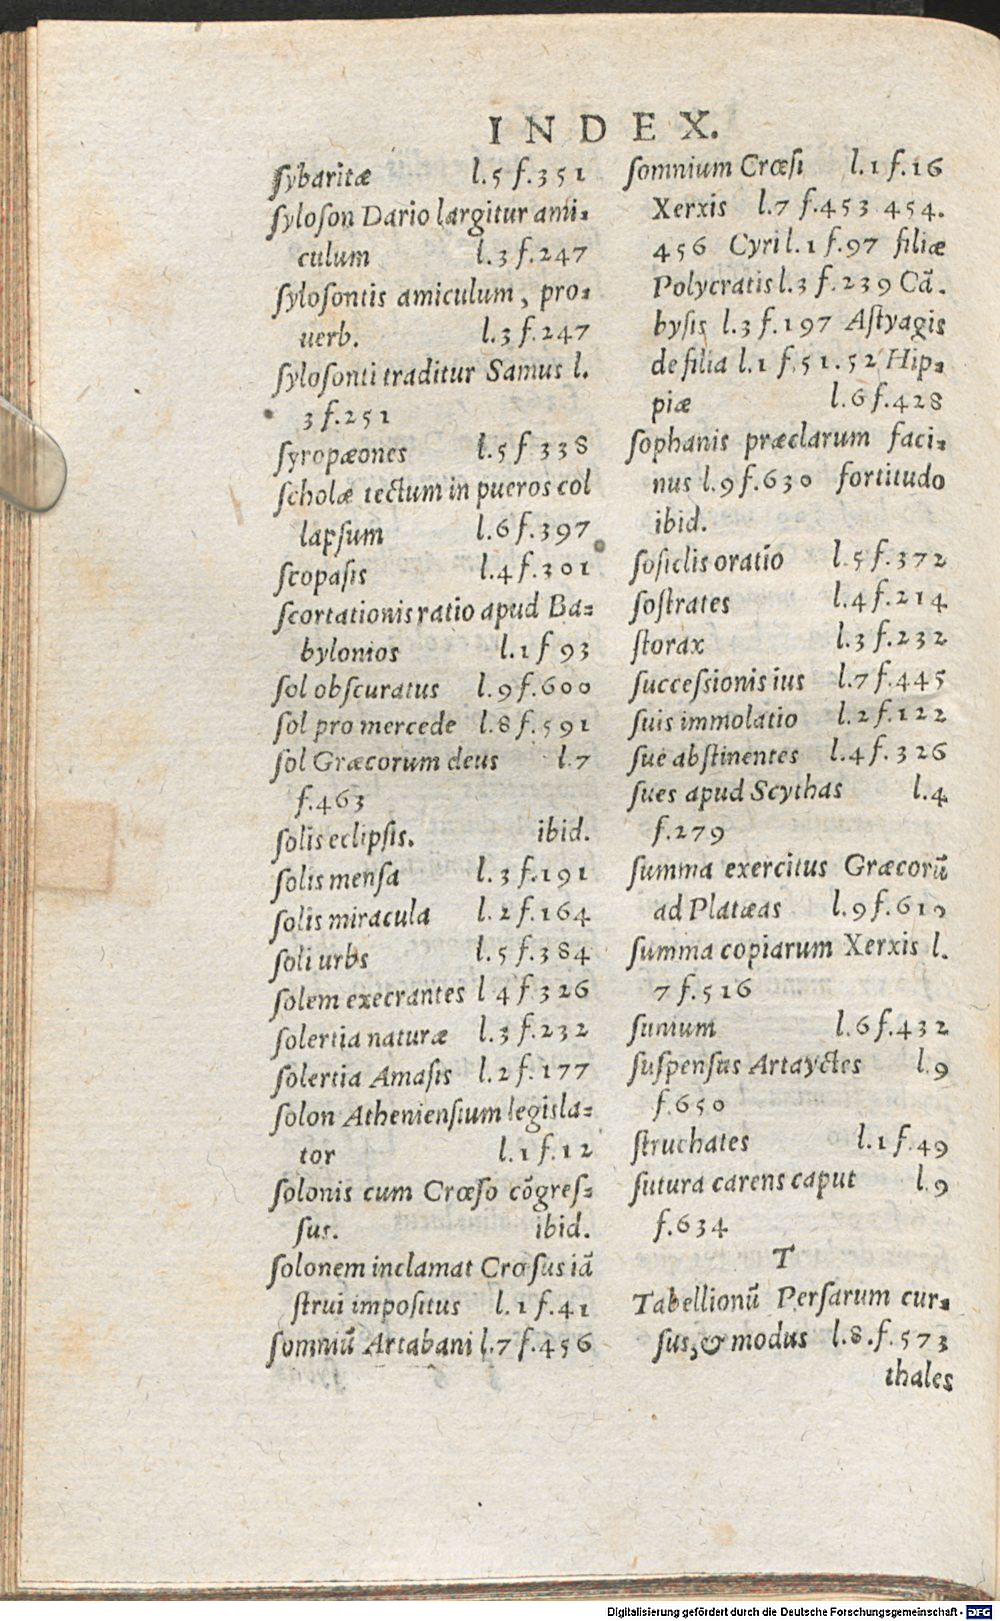 INDEX.
ſybaritæ l.5 f.351
ſyloſon Dario largitur ami=
culum l.3 f.247
ſyloſontis amiculum, pro=
uerb. l.3 f.247
ſyloſonti traditur Samus l.
3 f.251
ſyropæones l.5 f 338
ſcholæ tectum in pueros col
lapſum l.6 f.397
ſcopaſis l.4 f.301
ſcortationis ratio apud Ba=
bylonios l.1 f 93
ſol obſcuratus l.9 f.600
ſol pro mercede l.8 f.591
ſol Græcorum deus l.7
f.463
ſolis eclipſis. ibid.
ſolis menſa l.3 f.191
ſolis miracula l.2 f.164
ſoli urbs l.5 f.384
ſolem execrantes l 4 f 326
ſolertia naturæ l.3 f.232
ſolertia Amaſis l.2 f.177
ſolon Athenienſium legisla=
tor l.1 f.12
ſolonis cum Crœſo cõgreſ=
ſus. ibid.
ſolonem inclamat Crœſus iã
ſtrui impoſitus l.1 f.41
ſomniũ Artabani l.7 f.456
ſomnium Crœſi l.1 f.16
Xerxis l.7 f.453 454.
456 Cyri l.1 f.97 filiæ
Polycratis l.3 f.239 Cã.
byſis l.3 f.197 Aſtyagis
de filia l.1 f.51.52 Hip=
piæ l.6 f.428
ſophanis præclarum faci=
nus l.9 f.630 fortitudo
ibid.
ſoſiclis oratio l.5 f.372
ſoſtrates l.4 f.214
ſtorax l.3 f.232
ſucceſsionis ius l.7 f.445
ſuis immolatio l.2 f.122
ſue abſtinentes l.4 f.326
ſues apud Scythas l.4
f.279
ſumma exercitus Græcorũ
ad Platæas l.9 f.610
ſumma copiarum Xerxis l.
7 f.516
ſunium l.6 f.432
ſuſpenſus Artayctes l.9
f.650
ſtruchates l.1 f.49
ſutura carens caput l.9
f.634
T
Tabellionũ Perſarum cur=
ſus, & modus l.8.f.573
thales
Digitalisierung gefördert durch die Deutsche Forschungsgemeinschaft - DFG